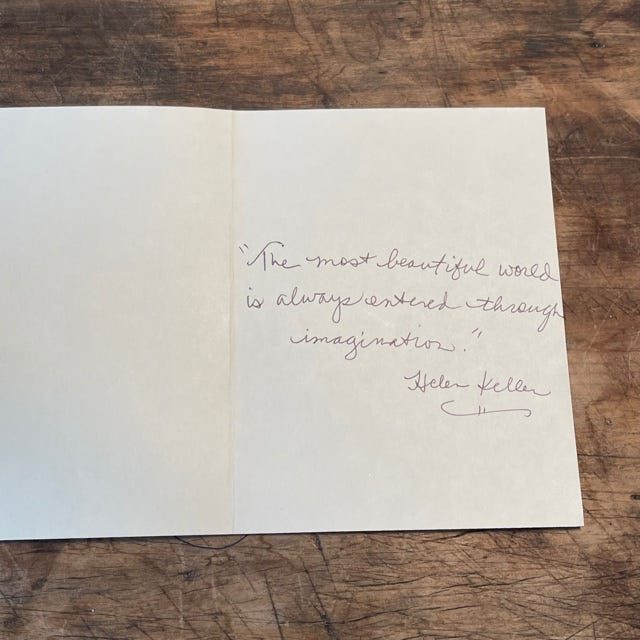 "The most beautiful world
is always entered through
imagination."
Helen Keller